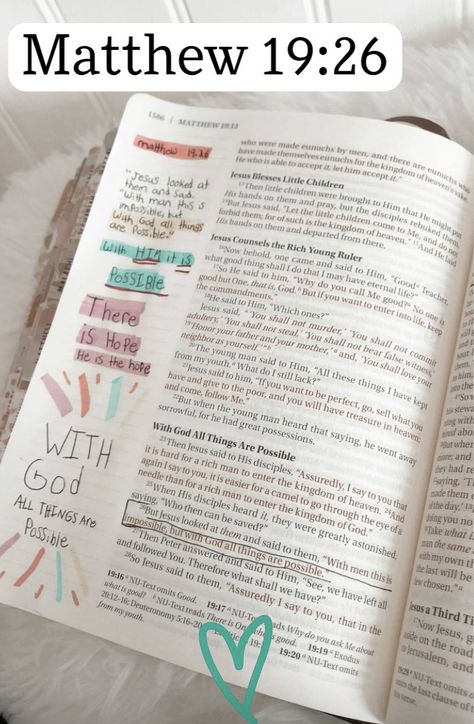 Matthew 19:26
1586 | MATTHEW 19:13
matthew 19:26
"Jesus looked at
them and said,
"With man this is
impossible, but
with God all things
are Possible."
With HIM it is
POSSIBLE
There
is Hope
He is the hope
WITH
God
ALL THINGS Are
Possible
who were made eunuchs by men, and there are eunuchs who
have made themselves eunuchs for the kingdom of heaven's sake.
He who is able to accept it, let him accept it."
Jesus Blesses Little Children
13Then little children were brought to Him that He might put
His hands on them and pray, but the disciples rebuked them.
14But Jesus said, "Let the little children come to Me, and do not
forbid them; for of such is the kingdom of heaven." 15And He laid
His hands on them and departed from there.
Jesus Counsels the Rich Young Ruler
16Now behold, one came and said to Him, "Good Teacher,
what good thing shall I do that I may have eternal life?"
17So He said to him, "Why do you call Me good? No one is
good but One, that is, God. But if you want to enter into life, keep
the commandments."
18He said to Him, "Which ones?"
Jesus said, "'You shall not murder,' 'You shall not commit
adultery,' 'You shall not steal,' 'You shall not bear false witness,'
19'Honor your father and your mother,' and, 'You shall love your
neighbor as yourself.'"
20The young man said to Him, "All these things I have kept
from my youth. What do I still lack?"
21Jesus said to him, "If you want to be perfect, go, sell what you
have and give to the poor, and you will have treasure in heaven;
and come, follow Me."
22But when the young man heard that saying, he went away
sorrowful, for he had great possessions.
With God All Things Are Possible
23Then Jesus said to His disciples, "Assuredly, I say to you that
it is hard for a rich man to enter the kingdom of heaven. 24And
again I say to you, it is easier for a camel to go through the eye of a
needle than for a rich man to enter the kingdom of God."
25When His disciples heard it, they were greatly astonished,
saying, "Who then can be saved?"
26But Jesus looked at them and said to them, "With men this is
impossible, but with God all things are possible."
27Then Peter answered and said to Him, "See, we have left all
and followed You. Therefore what shall we have?"
28So Jesus said to them, "Assuredly I say to you, that in the
19:16 NU-Text omits Good. 19:17 NU-Text reads Why do you ask Me about
what is good? NU-Text reads There is One who is good. 19:19 Exodus
20:12–16; Deuteronomy 5:16–20 19:20 NU-Text omits
from my youth.